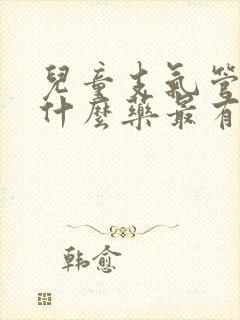 兒童支氣管
什麼藥最有
韩愈